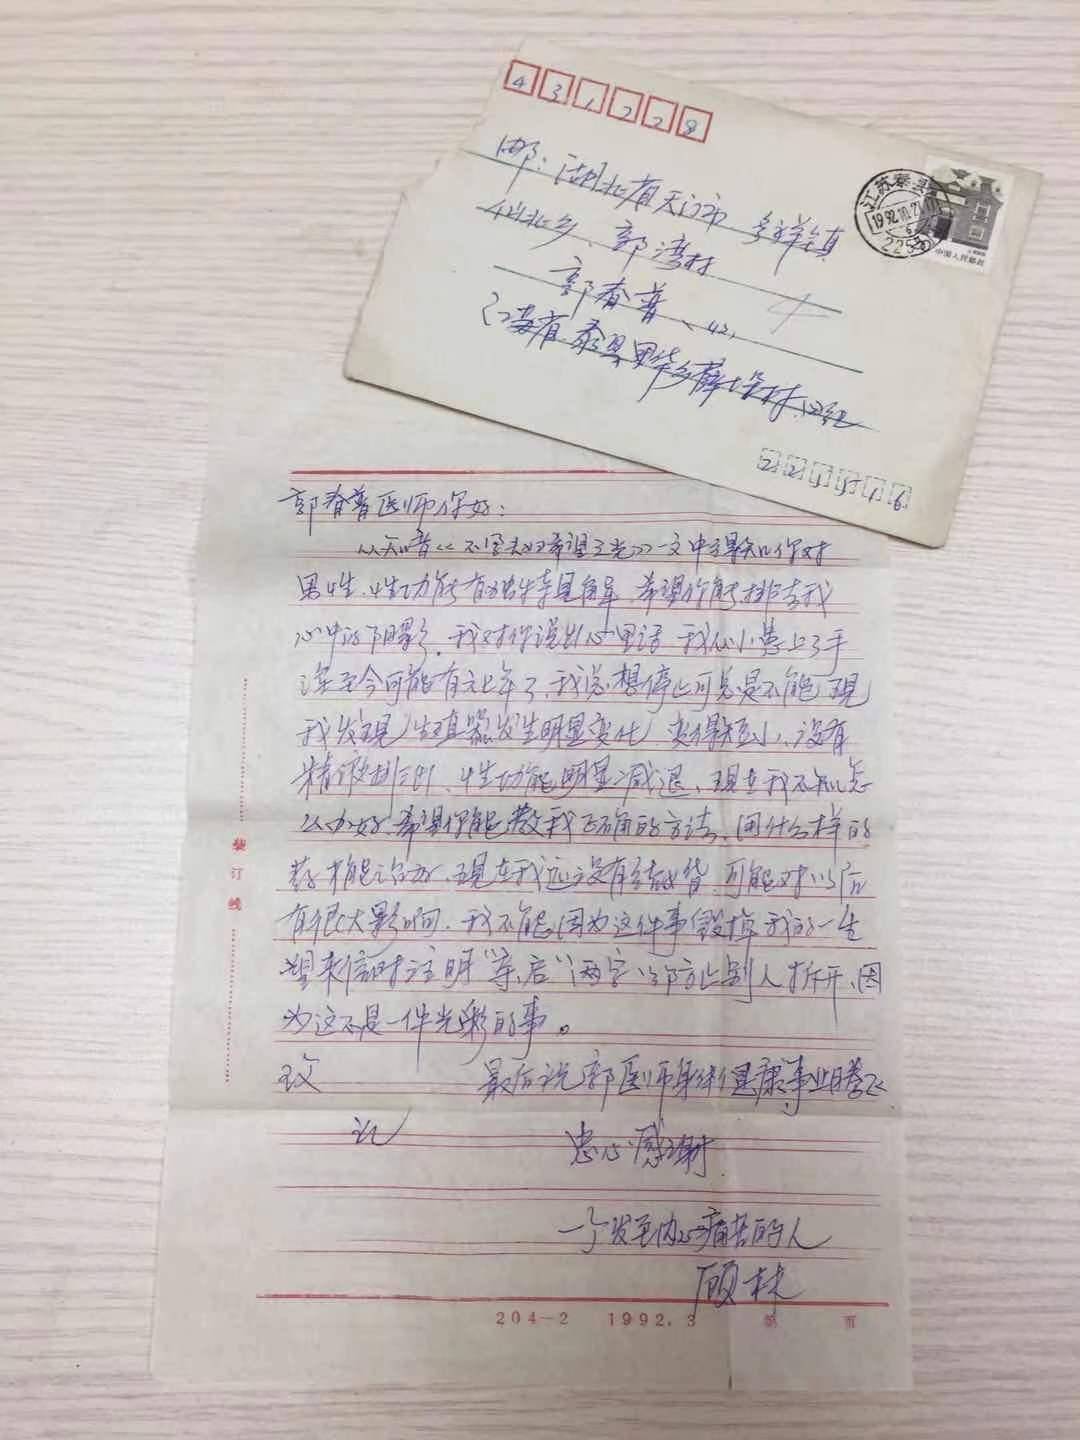 431228
邮：湖北省天门市多祥镇
北乡、郭湾村
郭春普、
江苏省泰县里华乡薛 村
江苏泰县
1992.10.2
2255
中国人民邮政
郭春普医师你好：
从知音《不寻夫妇希望之光》一文中得知你对
男性.性功能有独特见解、希望你能排去我
心中的阴影.我对你说出心里话 我从小患上了手
淫至今可能有七年了、我总想停止可总是不能 现
我发现生殖器发生明显变化 变得短小、没有
精液排出、性功能明显减退、现在我不知怎
么办好.希望你能教我正确的方法、用什么样的
药才能治好、现在我还没有结婚、可能对以后
有很大影响.我不能因为这件事毁掉我的一生
望来信时注明“亲启”两字 以防止别人拆开、因
为这不是一件光彩的事。
致 最后祝郭医师身体健康事业腾飞
礼
忠心感谢
一个发至内心痛苦的人
顾林
装订线
204-2 1992.3 第 页